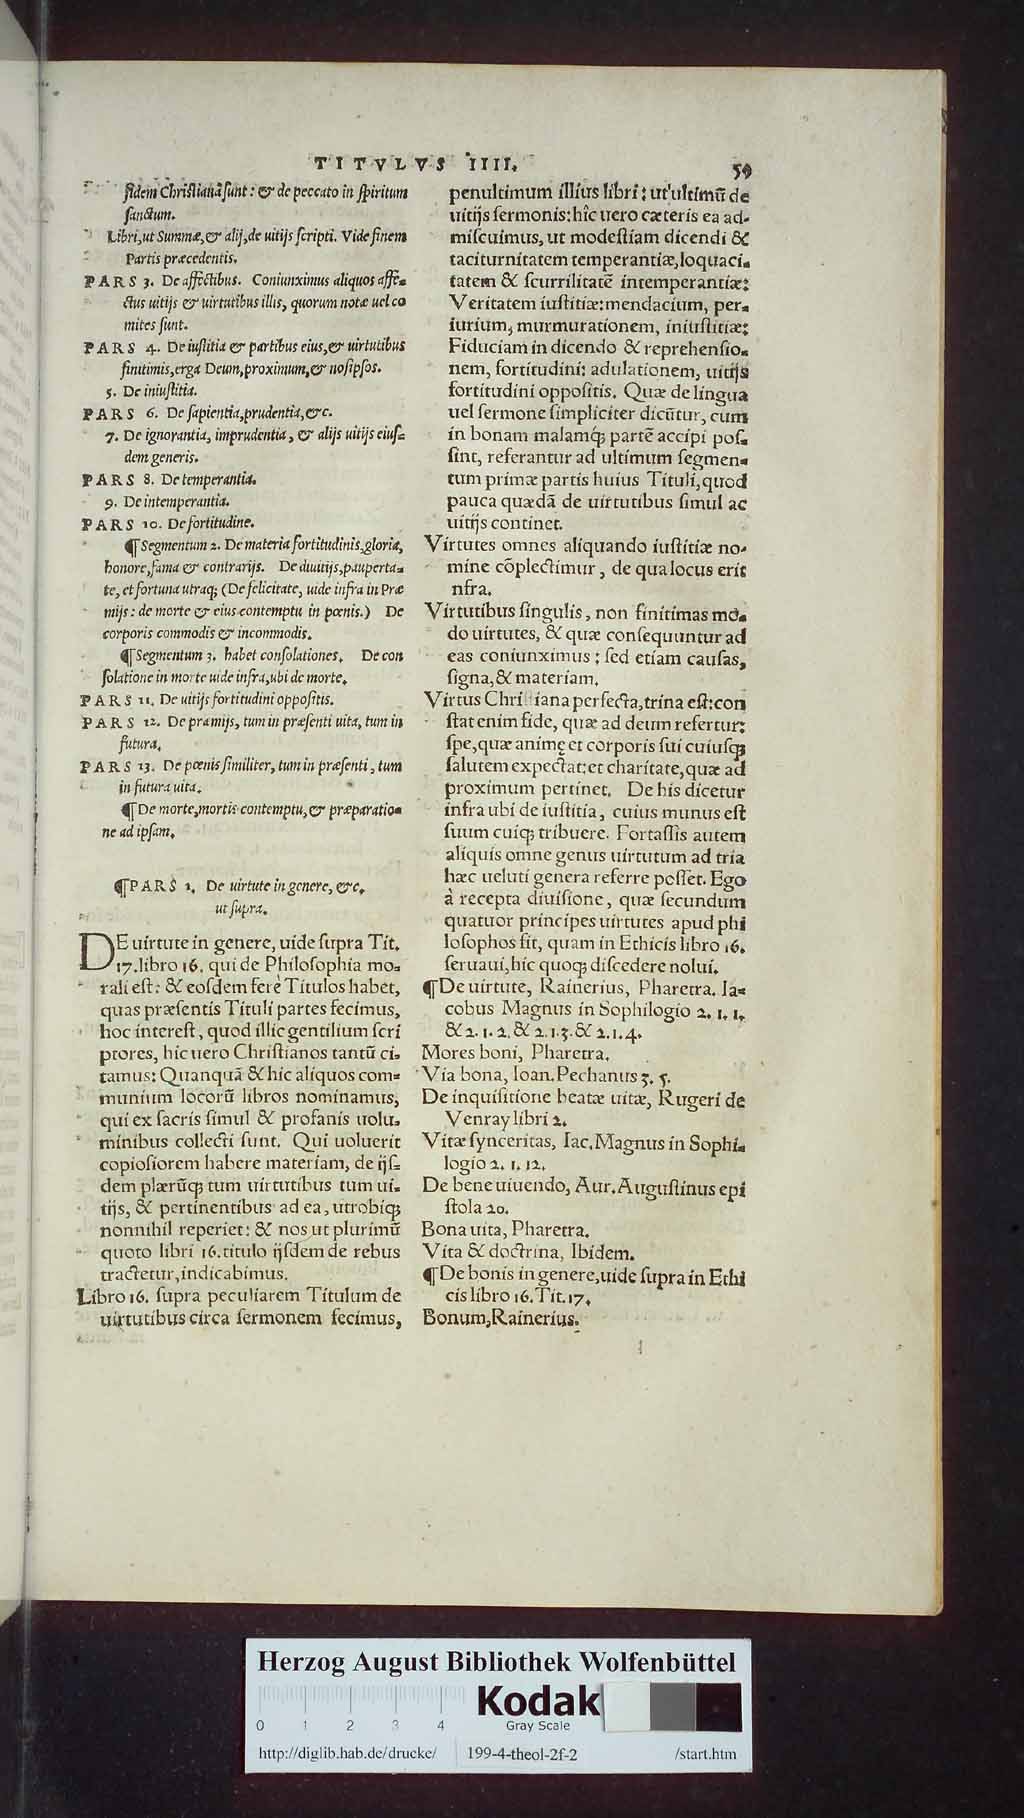 TITVLVS IIII. 59
fidem Christianā sunt: & de peccato in spiritum
sanctum.
Libri, ut Summæ, & alij, de uitijs scripti. Vide finem
Partis præcedentis.
PARS 3. De affectibus. Coniunximus aliquos affe-
ctus uitijs & uirtutibus illis, quorum notæ uel co
mites sunt.
PARS 4. De iustitia & partibus eius, & uirtutibus
finitimis, erga Deum, proximum, & nosipsos.
5. De iniustitia.
PARS 6. De sapientia, prudentia, &c.
7. De ignorantia, imprudentia, & alijs uitijs eius-
dem generis.
PARS 8. De temperantia.
9. De intemperantia.
PARS 10. De fortitudine.
¶ Segmentum 2. De materia fortitudinis, gloria,
honore, fama & contrarijs. De diuitijs, pauperta-
te, et fortuna utraq; (De felicitate, uide infra in Præ
mijs: de morte & eius contemptu in pœnis.) De
corporis commodis & incommodis.
¶ Segmentum 3. habet consolationes. De con
solatione in morte uide infra, ubi de morte.
PARS 11. De uitijs fortitudini oppositis.
PARS 12. De præmijs, tum in præsenti uita, tum in
futura.
PARS 13. De pœnis similiter, tum in præsenti, tum
in futura uita.
¶ De morte, mortis contemptu, & præparatio-
ne ad ipsam.
¶ PARS 1. De uirtute in genere, &c.
ut supra.
DE uirtute in genere, uide supra Tit.
17. libro 16. qui de Philosophia mo-
rali est: & eosdem ferè Titulos habet,
quas præsentis Tituli partes fecimus,
hoc interest, quod illic gentilium scri
ptores, hic uero Christianos tantū ci-
tamus: Quanquā & hic aliquos com-
munium locorū libros nominamus,
qui ex sacris simul & profanis uolu-
minibus collecti sunt. Qui uoluerit
copiosiorem habere materiam, de ijs-
dem plærūq; tum uirtutibus tum ui-
tijs, & pertinentibus ad ea, utrobiq;
nonnihil reperiet: & nos ut plurimū
quoto libri 16. titulo ijsdem de rebus
tractetur, indicabimus.
Libro 16. supra peculiarem Titulum de
uirtutibus circa sermonem fecimus,
penultimum illius libri: ut ultimū de
uitijs sermonis: hîc uero cæteris ea ad-
miscuimus, ut modestiam dicendi &
taciturnitatem temperantiæ, loquaci-
tatem & scurrilitatē intemperantiæ:
Veritatem iustitiæ: mendacium, per-
iurium, murmurationem, iniustitiæ:
Fiduciam in dicendo & reprehensio-
nem, fortitudini: adulationem, uitijs
fortitudini oppositis. Quæ de lingua
uel sermone simpliciter dicūtur, cum
in bonam malamq; partē accipi pos-
sint, referantur ad ultimum segmen-
tum primæ partis huius Tituli, quod
pauca quædā de uirtutibus simul ac
uitijs continet.
Virtutes omnes aliquando iustitiæ no-
mine cōplectimur, de qua locus erit
nfra.
Virtutibus singulis, non finitimas mo-
do uirtutes, & quæ consequuntur ad
eas coniunximus: sed etiam causas,
signa, & materiam.
Virtus Chri iana perfecta, trina est: con
stat enim fide, quæ ad deum refertur:
spe, quæ animę et corporis sui cuiusq;
salutem expectat: et charitate, quæ ad
proximum pertinet. De his dicetur
infra ubi de iustitia, cuius munus est
suum cuiq; tribuere. Fortassis autem
aliquis omne genus uirtutum ad tria
hæc ueluti genera referre posset. Ego
à recepta diuisione, quæ secundum
quatuor principes uirtutes apud phi
losophos fit, quam in Ethicis libro 16.
seruaui, hic quoq; discedere nolui.
¶ De uirtute, Rainerius, Pharetra. Ia-
cobus Magnus in Sophilogio 2. 1. 1.
& 2. 1. 2. & 2. 1. 3. & 2. 1. 4.
Mores boni, Pharetra.
Via bona, Ioan. Pechanus 3. 5.
De inquisitione beatæ uitæ, Rugeri de
Venray libri 2.
Vitæ synceritas, Iac. Magnus in Sophi-
logio 2. 1. 12.
De bene uiuendo, Aur. Augustinus epi
stola 20.
Bona uita, Pharetra.
Vita & doctrina, Ibidem.
¶ De bonis in genere, uide supra in Ethi
cis libro 16. Tit. 17.
Bonum, Rainerius.
Herzog August Bibliothek Wolfenbüttel
0 1 2 3 4
Kodak
Gray Scale
http://diglib.hab.de/drucke/ 199-4-theol-2f-2 /start.htm